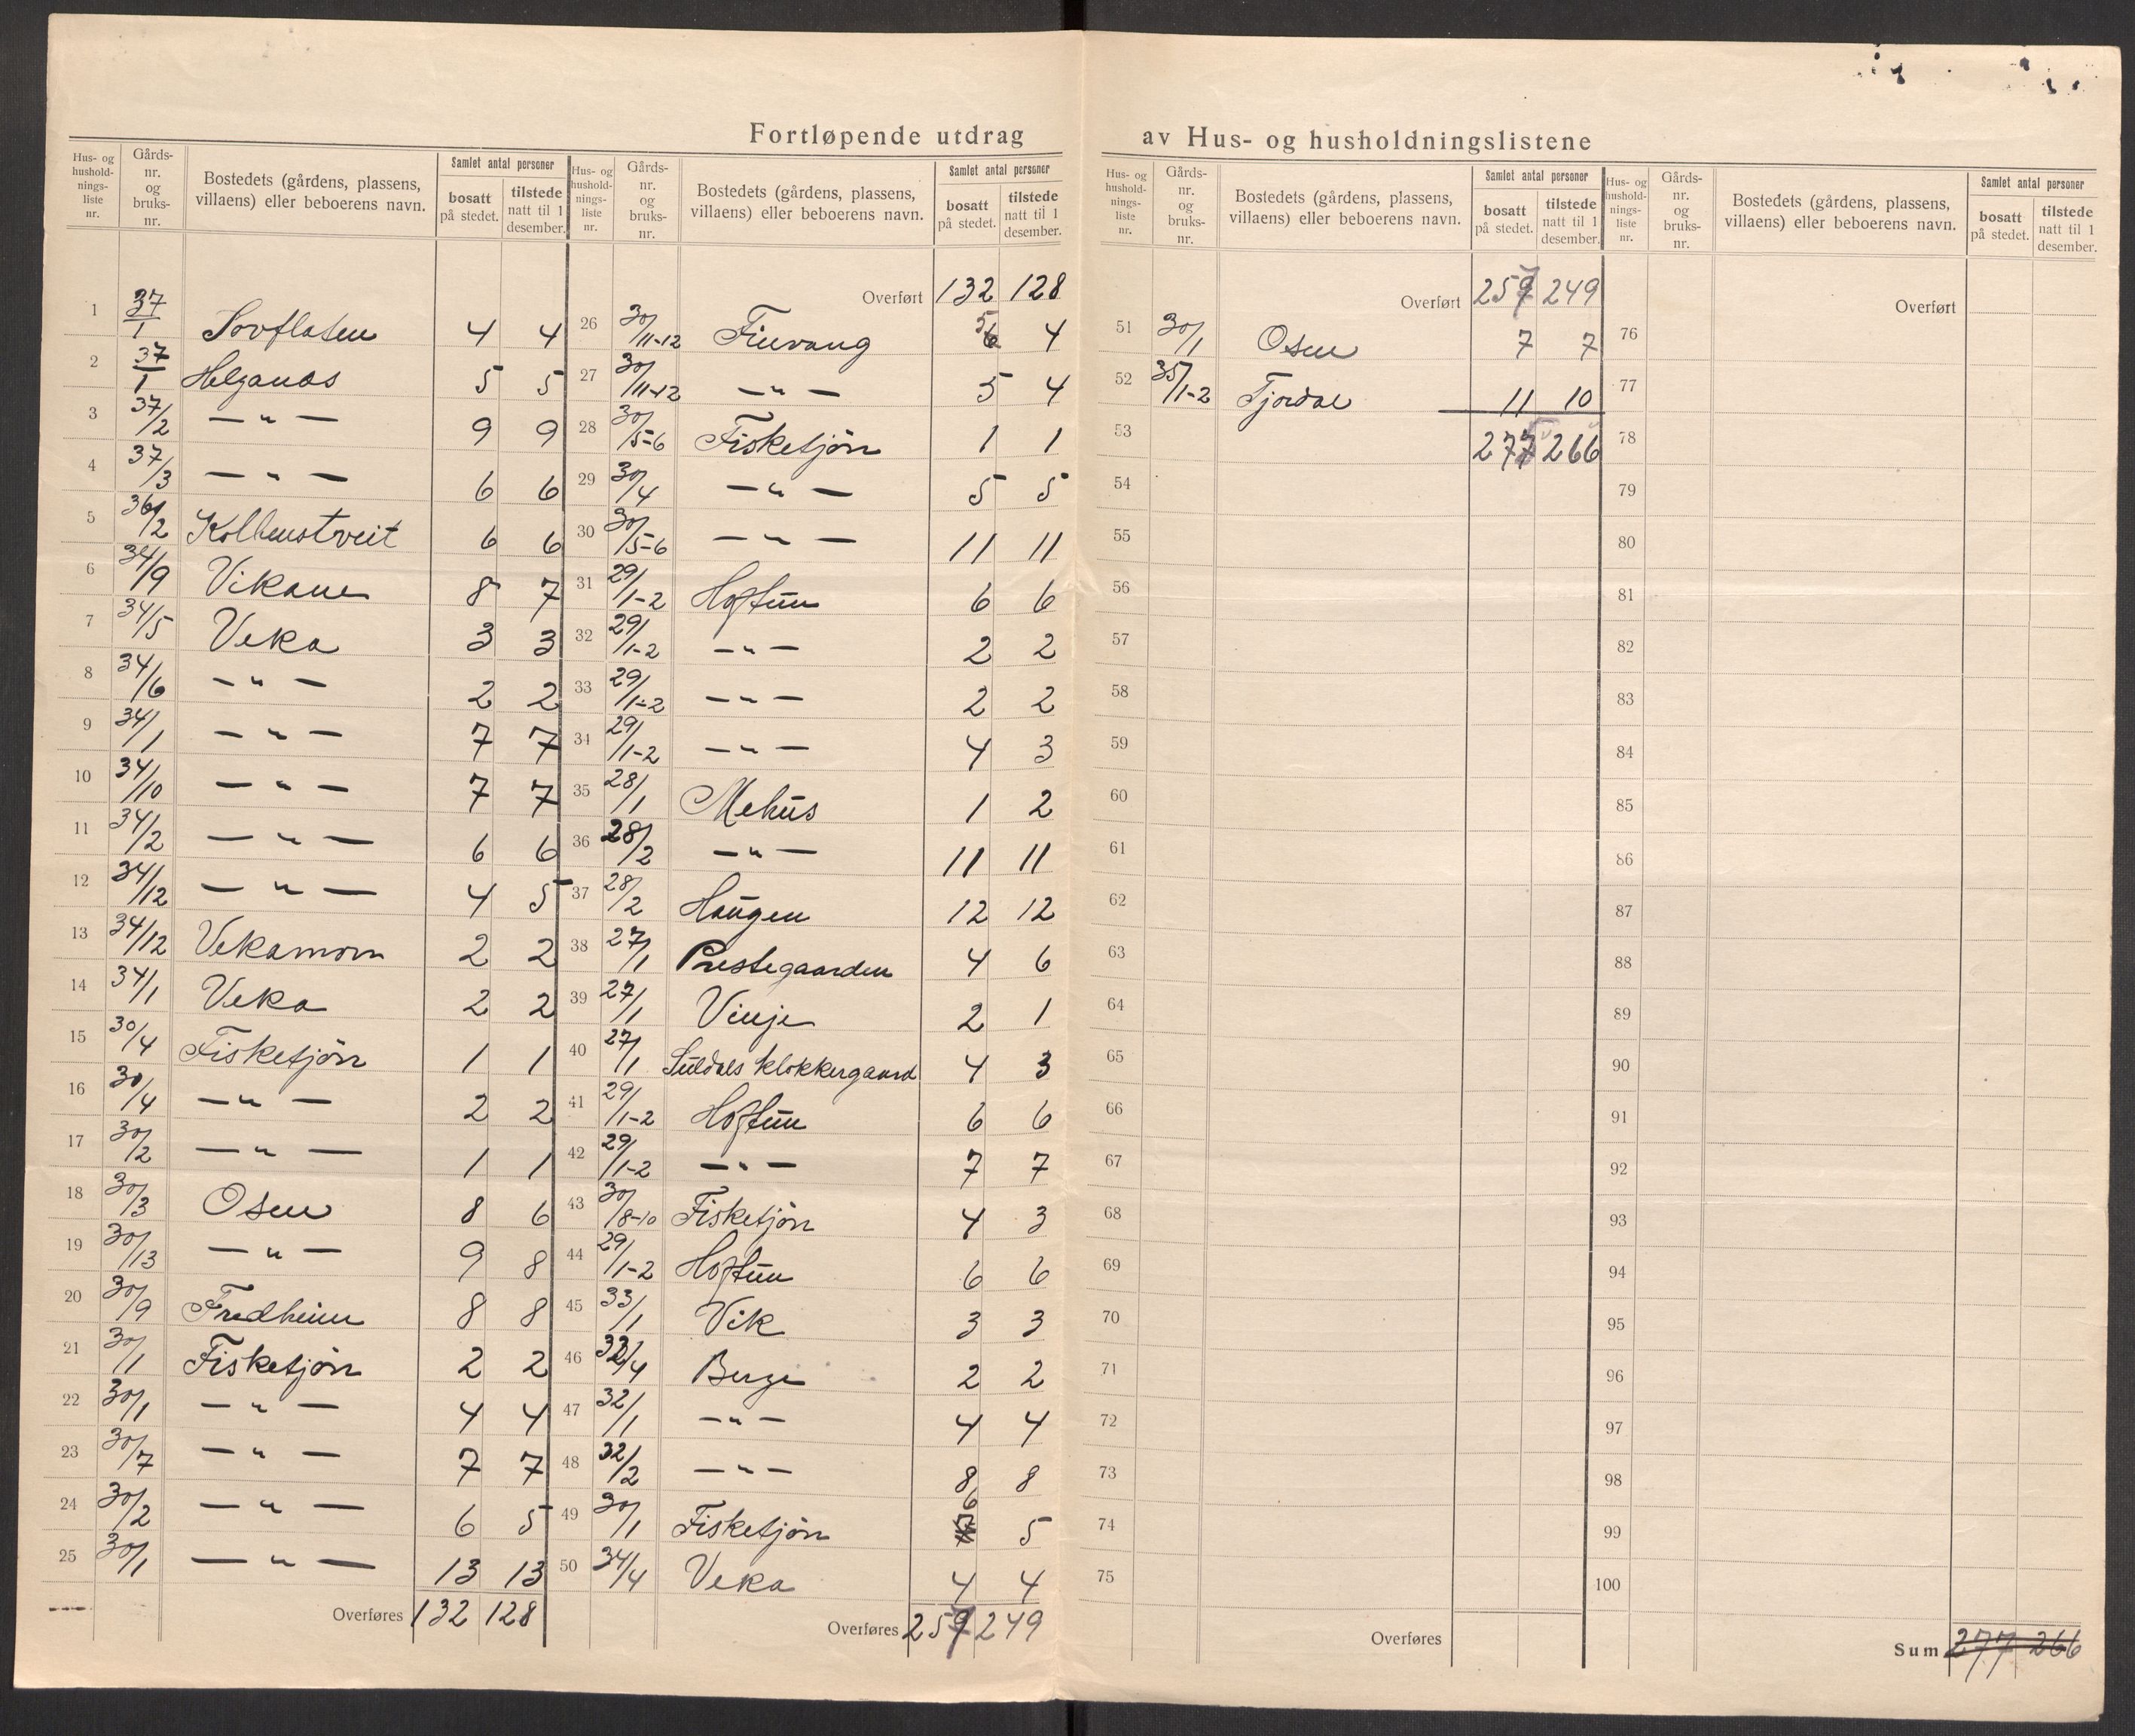 Fortløpende utdrag av Hus- og husholdningslistene
Hus- og husholdnings-liste nr. | Gårds-nr. og bruks-nr. | Bostedets (gårdens, plassens, villaens) eller beboerens navn. | Samlet antal personer | bosatt på stedet. | tilstede natt til 1 desember.
1 37/1 Sovflaten 4 4
2 37/1 Helganes 5 5
3 37/2 — " — 9 9
4 37/3 — " — 6 6
5 36/2 Kolbenstveit 6 6
6 34/9 Vikane 8 7
7 34/5 Veka 3 3
8 34/6 — " — 2 2
9 34/1 — " — 7 7
10 34/10 — " — 7 7
11 34/2 — " — 6 6
12 34/12 — " — 4 5
13 34/12 Vekamoen 2 2
14 34/1 Veka 2 2
15 30/4 Fisketjön 1 1
16 30/4 — " — 2 2
17 30/2 — " — 1 1
18 30/3 Osen 8 6
19 30/13 — " — 9 8
20 30/9 Fredheim 8 8
21 30/1 Fisketjön 2 2
22 30/1 — " — 4 4
23 30/7 — " — 7 7
24 30/2 — " — 6 5
25 30/1 — " — 13 13
Overføres 132 128
Hus- og husholdnings-liste nr. | Gårds-nr. og bruks-nr. | Bostedets (gårdens, plassens, villaens) eller beboerens navn. | Samlet antal personer | bosatt på stedet. | tilstede natt til 1 desember.
Overført 132 128
26 30/11-12 Finvang 5 4
27 30/11-12 — " — 5 4
28 30/5-6 Fisketjön 1 1
29 30/4 — " — 5 5
30 30/5-6 — " — 11 11
31 29/1-2 Hoftun 6 6
32 29/1-2 — " — 2 2
33 29/1-2 — " — 2 2
34 29/1-2 — " — 4 3
35 28/1 Mehus 1 2
36 28/2 — " — 11 11
37 28/2 Haugen 12 12
38 27/1 Prestegaarden 4 6
39 27/1 Vinje 2 1
40 27/1 Suldals klokkergaard 4 3
41 29/1-2 Hoftun 6 6
42 29/1-2 — " — 7 7
43 30/8-10 Fisketjön 4 3
44 29/1-2 Hoftun 6 6
45 33/1 Vik 3 3
46 32/4 Berge 2 2
47 32/1 — " — 4 4
48 32/2 — " — 8 8
49 30/1 Fisketjön 6 5
50 34/4 Veka 4 4
Overføres 257 249
Hus- og hushold-nings-liste nr. | Gårds-nr. og bruks-nr. | Bostedets (gårdens, plassens, villaens) eller beboerens navn. | Samlet antal personer | bosatt på stedet. | tilstede natt til 1 desember.
Overført 257 249
51 30/1 Osen 7 7
52 35/1-2 Fjordal 11 10
53 277 266
54
55
56
57
58
59
60
61
62
63
64
65
66
67
68
69
70
71
72
73
74
75
Overføres
Hus- og hushold-nings-liste nr. | Gårds-nr. og bruks-nr. | Bostedets (gårdens, plassens, villaens) eller beboerens navn. | Samlet antal personer | bosatt på stedet. | tilstede natt til 1 desember.
Overført
76
77
78
79
80
81
82
83
84
85
86
87
88
89
90
91
92
93
94
95
96
97
98
99
100
Sum 277 266